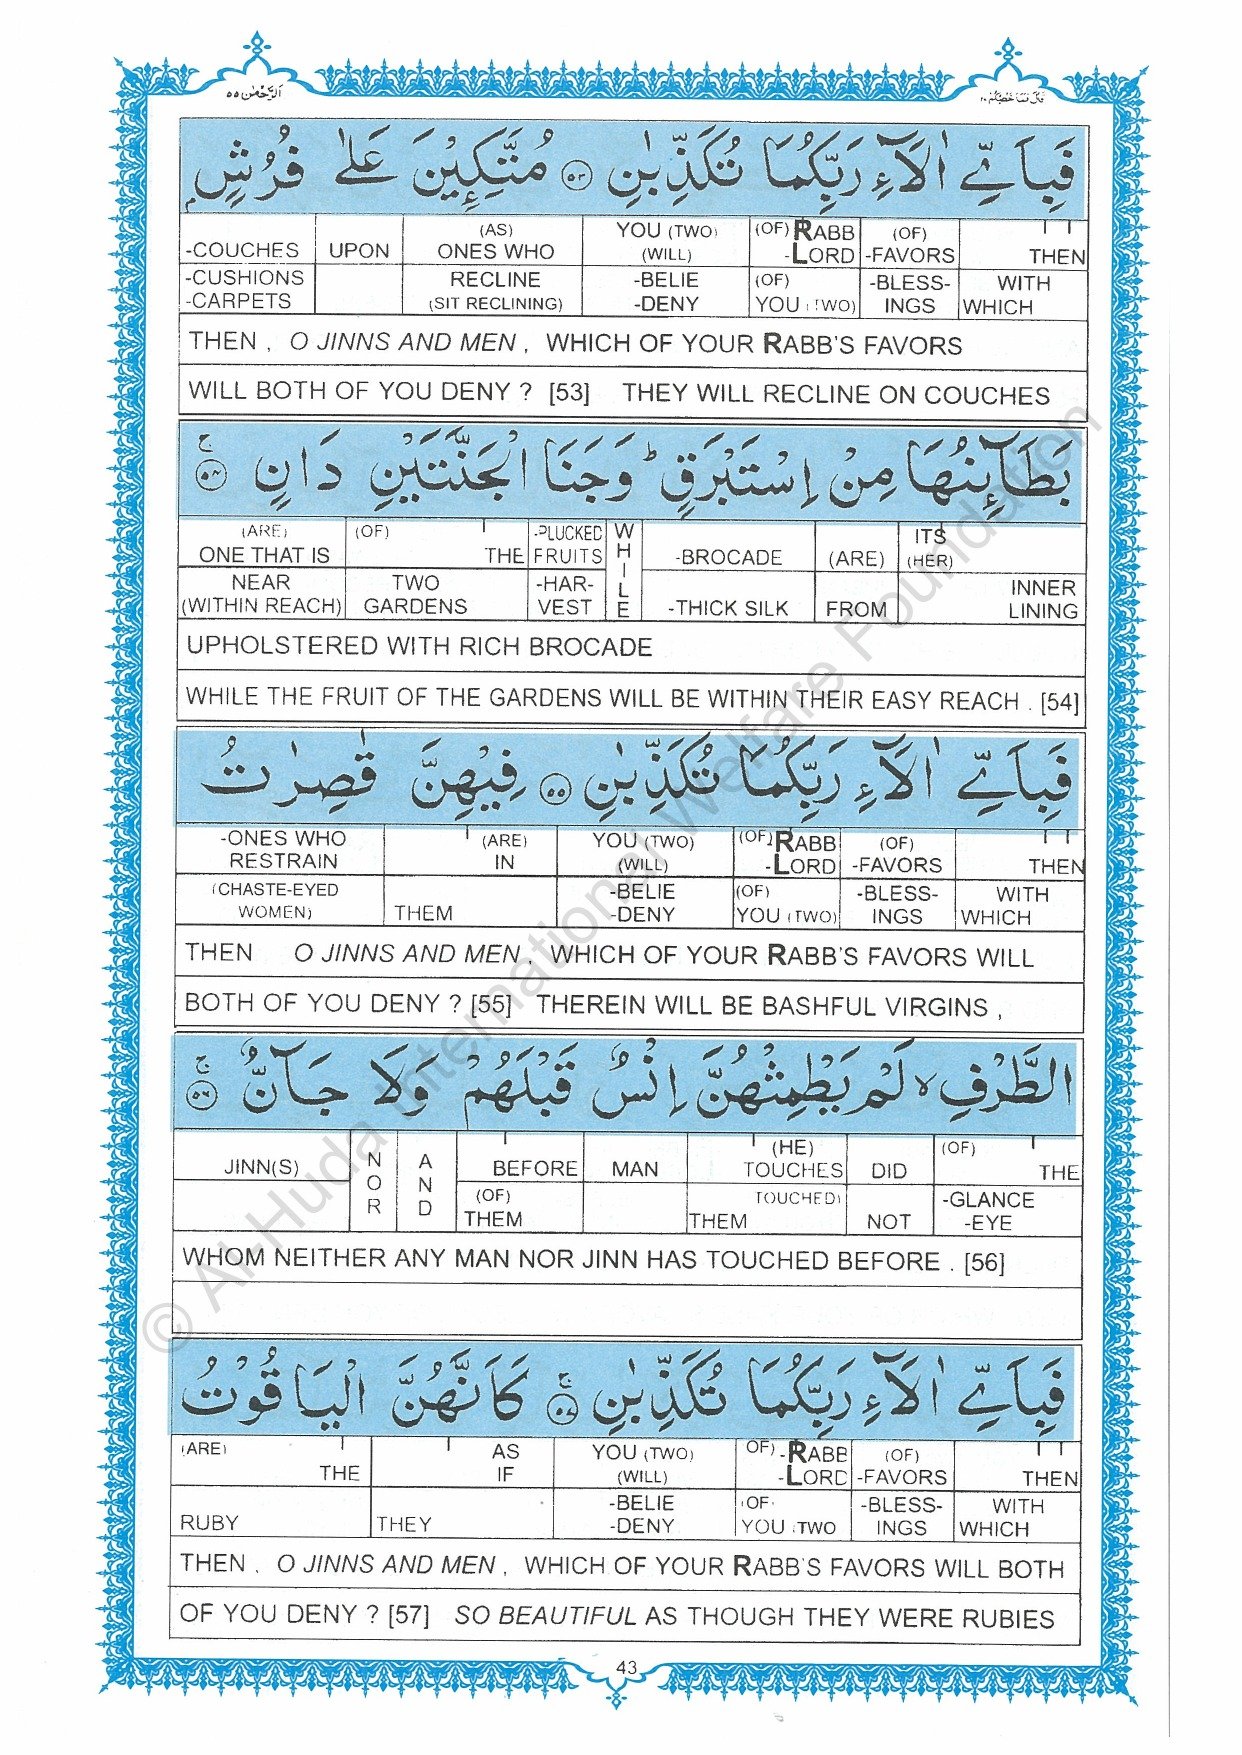 اَلرَّحْمٰن ٥٥
قَالَ فَمَا خَطْبُكُمْ ٢٧
فَبِاَیِّ اٰلَآءِ رَبِّكُمَا تُكَذِّبٰنِ ﴿٥٣﴾ مُتَّكِـِٕیْنَ عَلٰی فُرُشٍۭ
-COUCHES UPON (AS) ONES WHO YOU (TWO) (WILL) (OF) RABB -LORD (OF) -FAVORS THEN
-CUSHIONS -CARPETS RECLINE (SIT RECLINING) -BELIE -DENY (OF) YOU (TWO) -BLESS-INGS WITH WHICH
THEN , O JINNS AND MEN , WHICH OF YOUR RABB'S FAVORS
WILL BOTH OF YOU DENY ? [53] THEY WILL RECLINE ON COUCHES
بَطَآىِٕنُهَا مِنْ اِسْتَبْرَقٍ ؕ وَجَنَا الْجَنَّتَیْنِ دَانٍ ﴿٥٤﴾ ۚ
(ARE) ONE THAT IS (OF) THE -PLUCKED FRUITS WHILE -BROCADE (ARE) ITS (HER)
NEAR (WITHIN REACH) TWO GARDENS -HAR-VEST -THICK SILK FROM INNER LINING
UPHOLSTERED WITH RICH BROCADE
WHILE THE FRUIT OF THE GARDENS WILL BE WITHIN THEIR EASY REACH . [54]
فَبِاَیِّ اٰلَآءِ رَبِّكُمَا تُكَذِّبٰنِ ﴿٥٥﴾ فِیْهِنَّ قٰصِرٰتُ
-ONES WHO RESTRAIN (ARE) IN YOU (TWO) (WILL) (OF) RABB -LORD (OF) -FAVORS THEN
(CHASTE-EYED WOMEN) THEM -BELIE -DENY (OF) YOU (TWO) -BLESS-INGS WITH WHICH
THEN O JINNS AND MEN , WHICH OF YOUR RABB'S FAVORS WILL
BOTH OF YOU DENY ? [55] THEREIN WILL BE BASHFUL VIRGINS ,
الطَّرْفِ ۙ لَمْ یَطْمِثْهُنَّ اِنْسٌ قَبْلَهُمْ وَلَا جَآنٌّ ﴿٥٦﴾ ۚ
JINN(S) NOR AND BEFORE MAN (HE) TOUCHES DID (OF) THE
(OF) THEM TOUCHED) THEM NOT -GLANCE -EYE
WHOM NEITHER ANY MAN NOR JINN HAS TOUCHED BEFORE . [56]
فَبِاَیِّ اٰلَآءِ رَبِّكُمَا تُكَذِّبٰنِ ﴿٥٧﴾ ۚ كَاَنَّهُنَّ الْیَاقُوْتُ
(ARE) THE AS IF YOU (TWO) (WILL) OF) -RABB -LORD (OF) -FAVORS THEN
RUBY THEY -BELIE -DENY (OF) YOU (TWO -BLESS-INGS WITH WHICH
THEN , O JINNS AND MEN , WHICH OF YOUR RABB'S FAVORS WILL BOTH
OF YOU DENY ? [57] SO BEAUTIFUL AS THOUGH THEY WERE RUBIES
43
© Al-Huda International Welfare Foundation